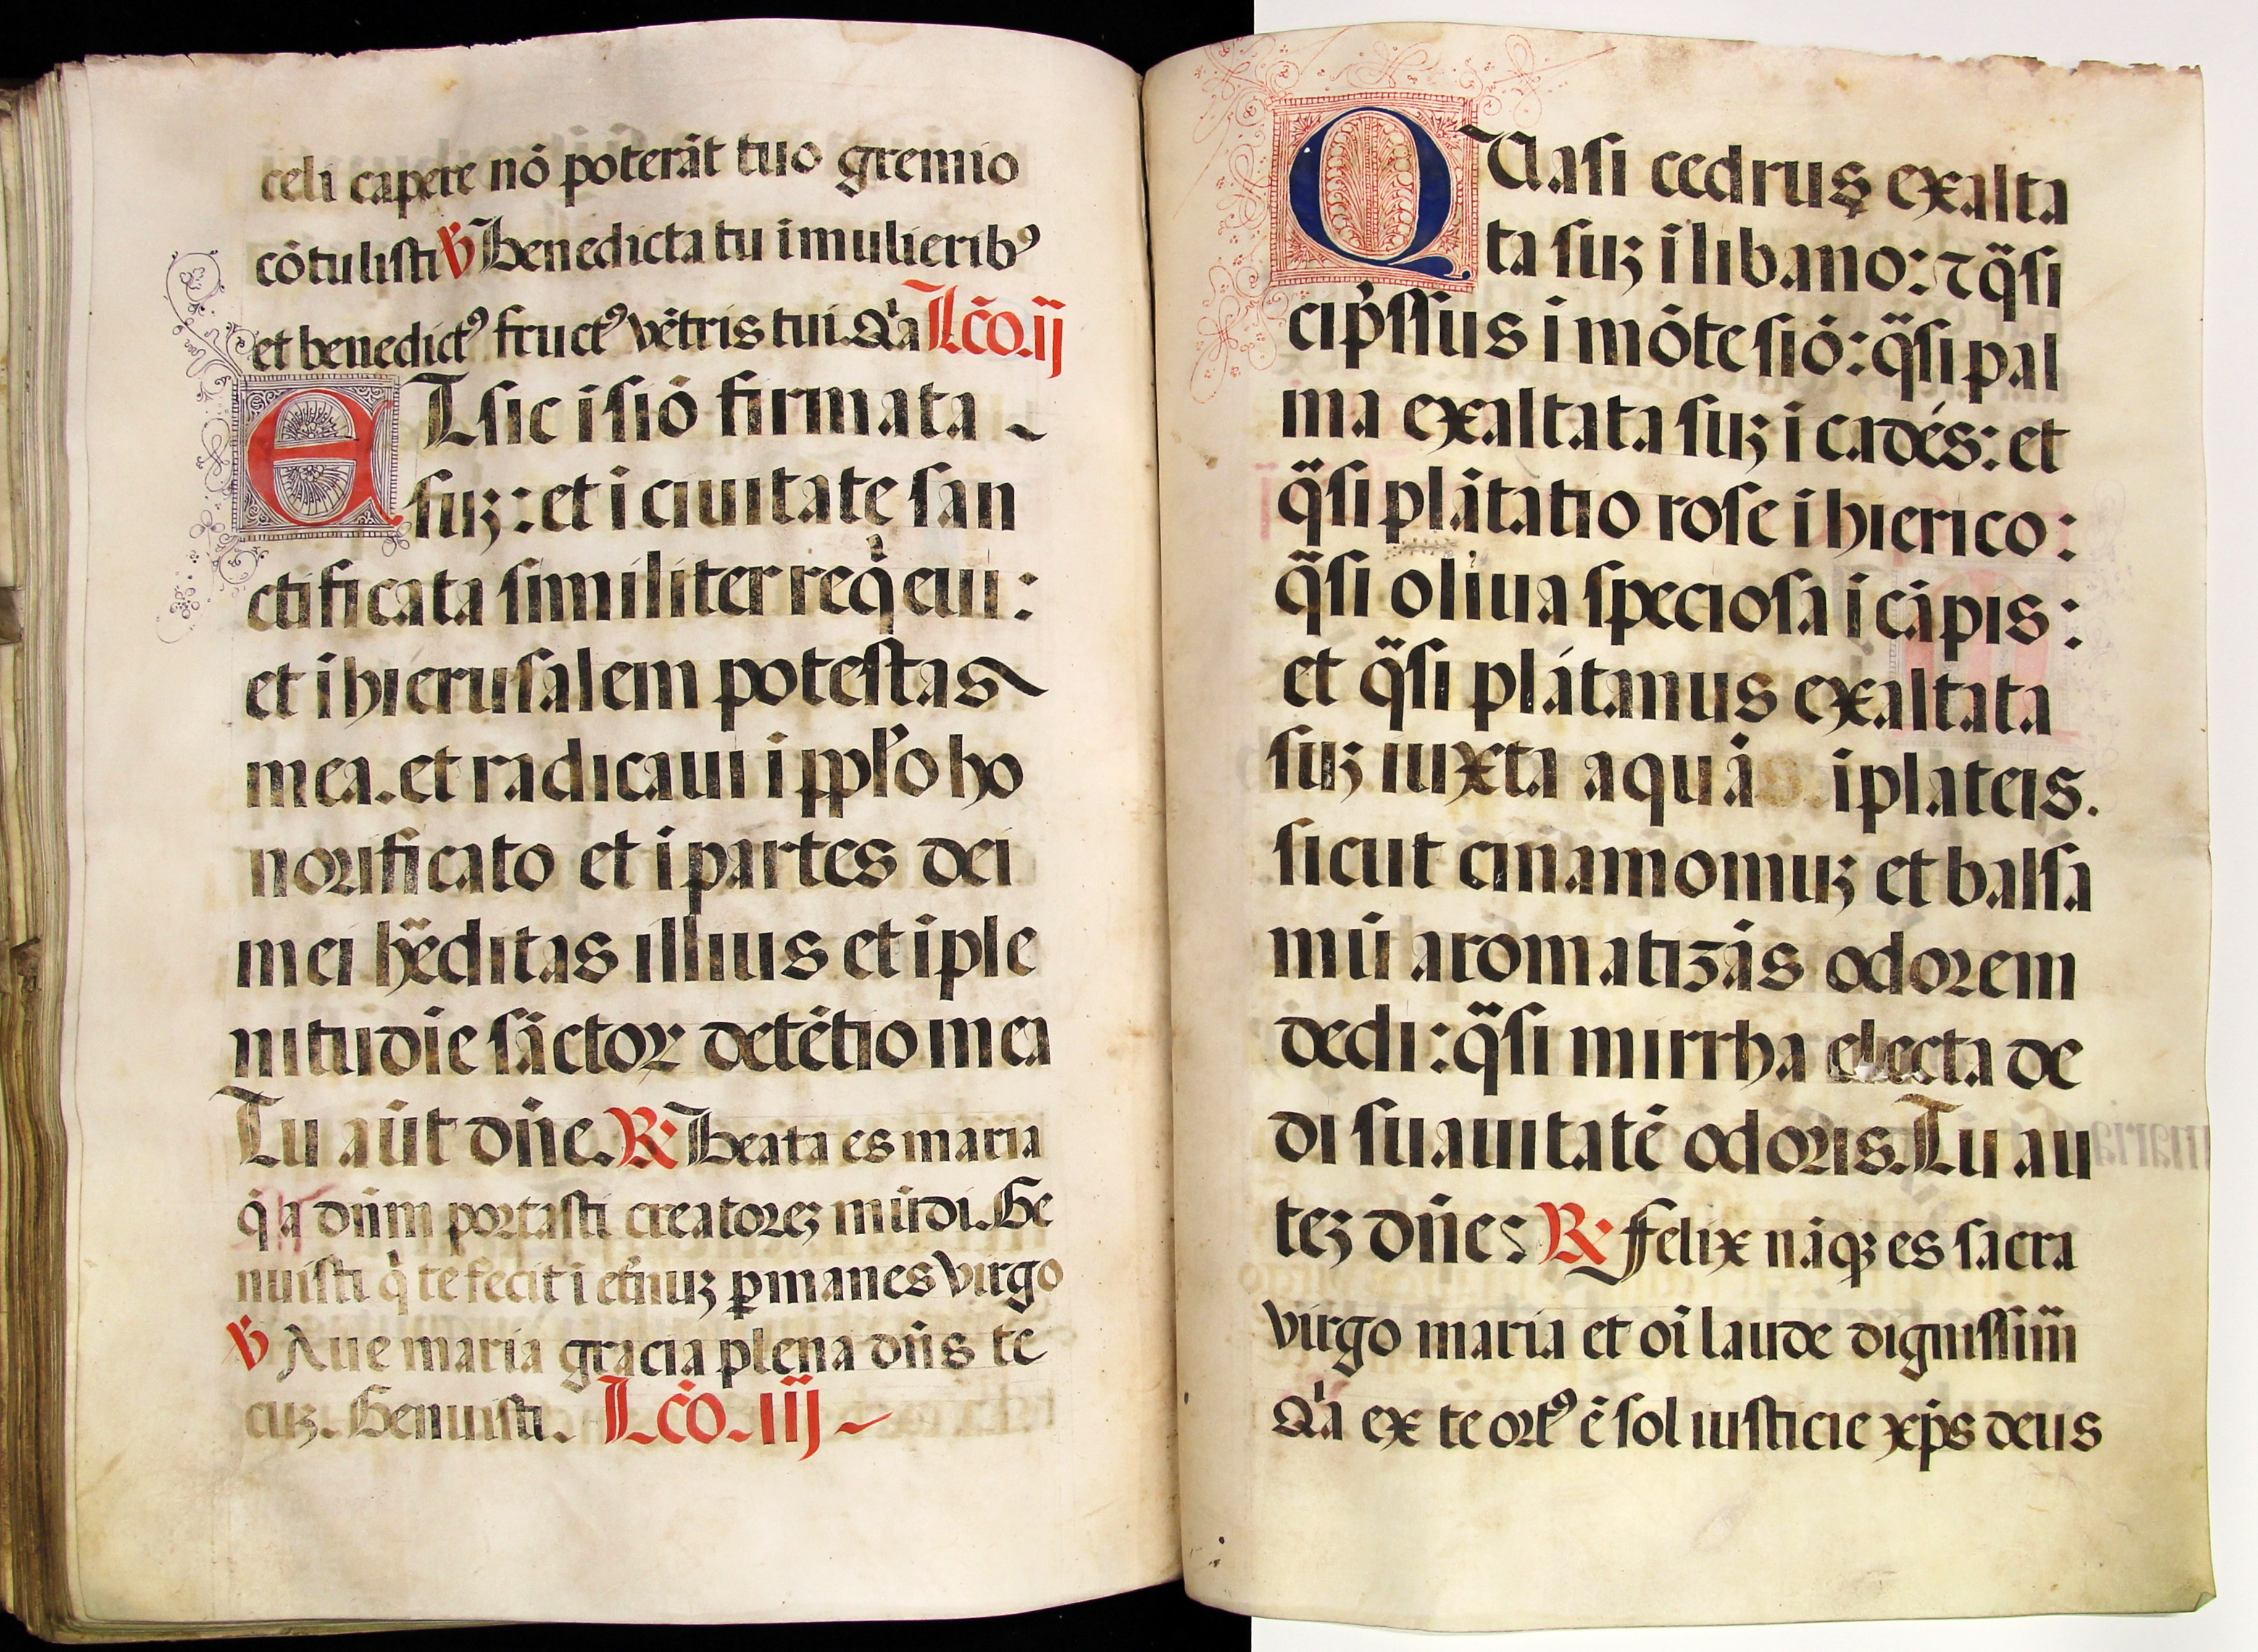 celi capere nō poterāt tuo gremio
cōtulisti ℣ Benedicta tu i mulierib⁹
et benedict⁹ fruct⁹ vētris tui. Qͥa Lc̄o. ij
ET sic i siō firmata
suꝫ : et i ciuitate san
ctificata similiter reqͥeui :
et i hierusalem potestas
mea. et radicaui i ppl̓o ho
norificato et i partes dei
mei hẽditas illius et iple
nitudīe sāctoꝝ detētio mea
Tu aūt dn̄e. ℟ Beata es maria
q̄ dn̄m portasti creatoreꝫ mūdi. Ge
nuisti qͥ te fecit i et̓nuꝫ ꝑmanes virgo
℣ Aue maria gracia plena dn̄s te
cuꝫ. Genuisti. Lc̄o. iij
QUasi cedrus exalta
ta suꝫ i libano : ⁊ q̄si
cip̓ssus i mōte siō : q̄si pal
ma exaltata suꝫ i cadés : et
q̄si plātatio rose i hierico :
q̄si oliua speciosa i cāpis :
et q̄si plátanus exaltata
suꝫ iuxta aquā i plateis.
sicut cinamomuꝫ et balsa
mū aromatizās odorem
dedi : q̄si mirrha electa de
di suauitatē odoris. Tu au
teꝫ dn̄e : ℟ Felix nāqꝫ es sacra
virgo maria et oī laude dignissim̄
Qͥa ex te ort⁹ ē sol iusticie xp̄s deus